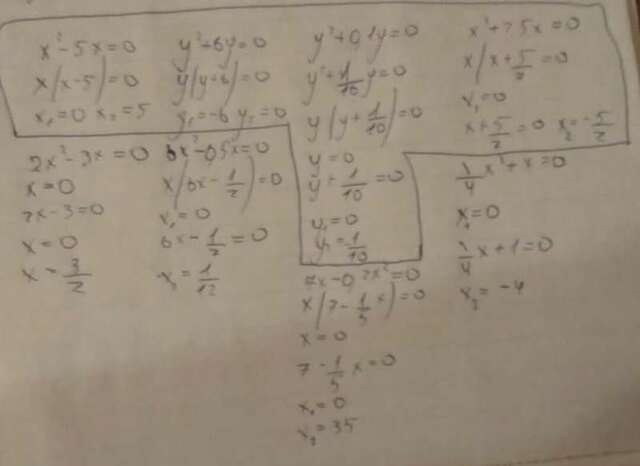 x²-5x=0
x(x-5)=0
x₁=0 x₂=5
y²+6y=0
y(y+6)=0
y₁=-6 y₂=0
y²+0,1y=0
y²+1/10 y=0
y(y+1/10)=0
y=0
y+1/10=0
y₁=0
x²+2,5x=0
x(x+5/2)=0
x₁=0
x+5/2=0 x₂=-5/2
2x²-3x=0
x=0
2x-3=0
x=0
x=3/2
6x²-0,5x=0
x(6x-1/2)=0
x₁=0
6x-1/2=0
x=1/12
7x-0,2x²=0
x(7-1/5 x)=0
x=0
7-1/5 x=0
x₁=0
x₂=35
1/4 x²+x=0
x₁=0
1/4 x+1=0
x₂=-4